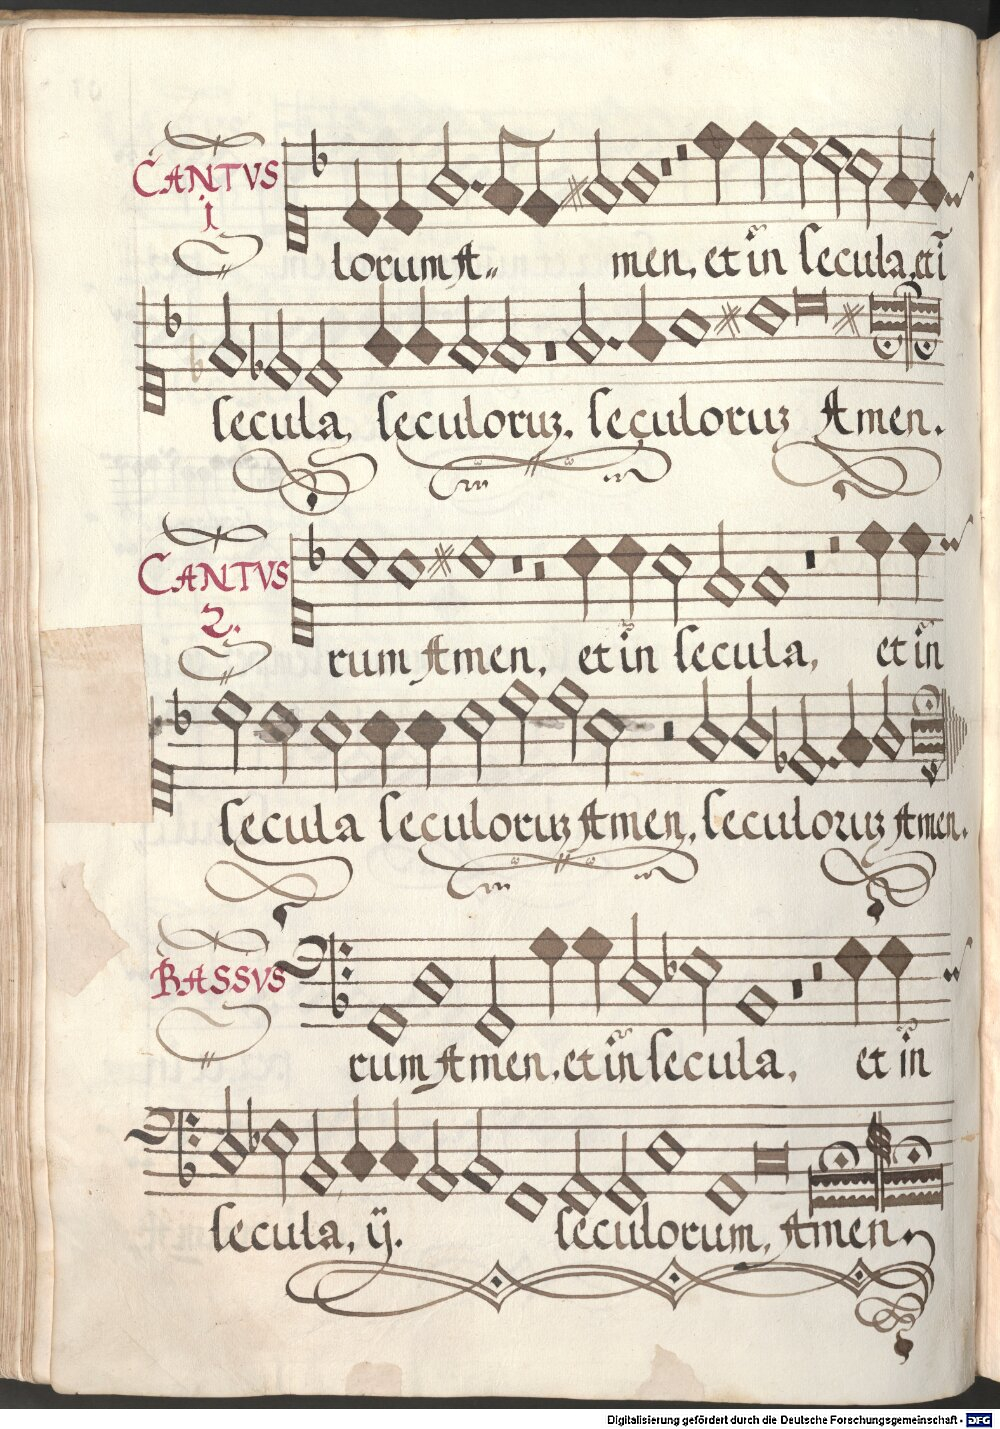 CANTVS
1
lorum A- men, et in secula, et i
secula, seculoruz, seculoruz Amen.
CANTVS
2.
rum Amen, et in secula, et in
secula seculoruz Amen, seculoruz Amen.
BASSVS
rum Amen, et in secula, et in
secula, ij. seculorum, Amen.
Digitalisierung gefördert durch die Deutsche Forschungsgemeinschaft - DFG